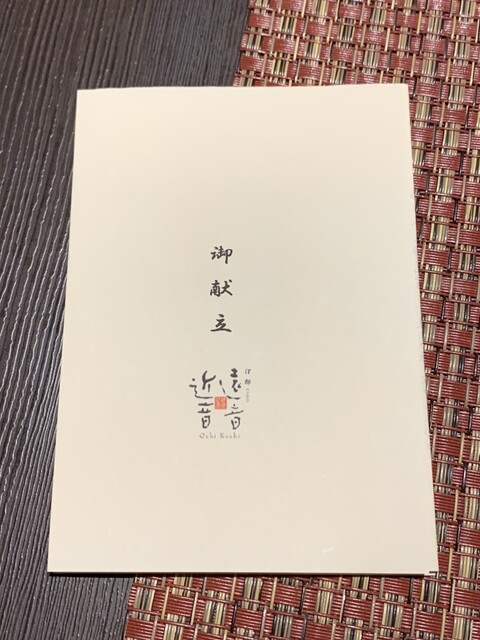 御献立
汀邸
遠音
近音
Ochi Kochi